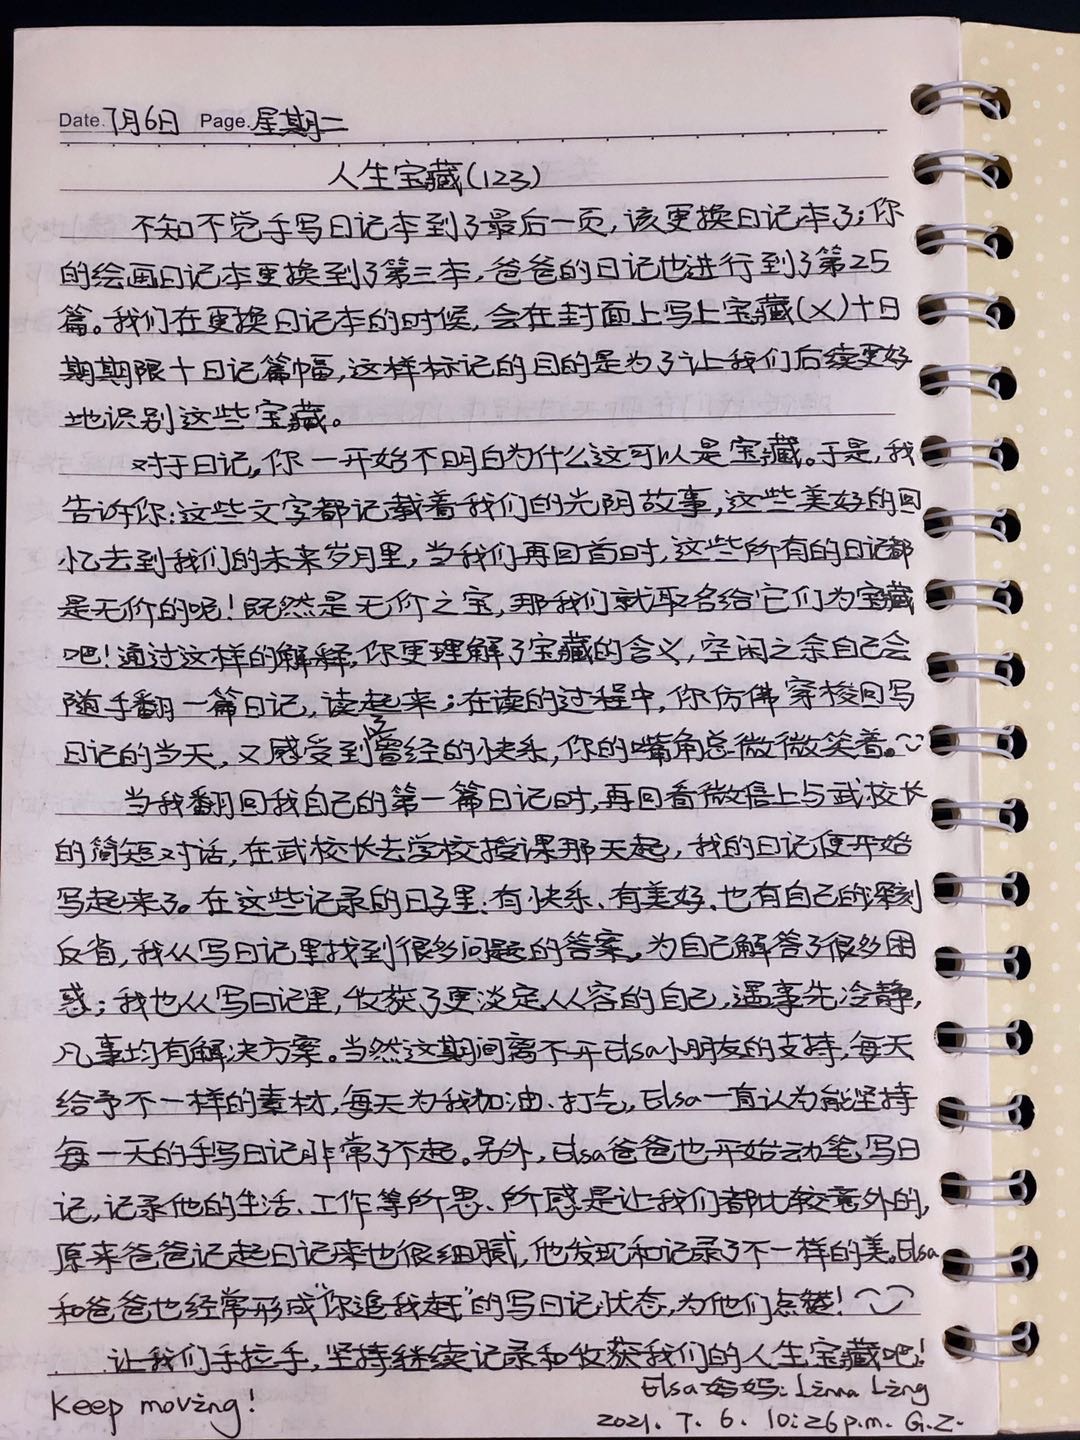 Date.7月6日 Page.星期二
人生宝藏(123)
不知不觉手写日记本到了最后一页,该更换日记本了;你
的绘画日记本更换到了第三本,爸爸的日记也进行到了第25
篇。我们在更换日记本的时候,会在封面上写上宝藏(X)十日
期期限十日记篇幅,这样标记的目的是为了让我们后续更好
地识别这些宝藏。
对于日记,你一开始不明白为什么这可以是宝藏。于是,我
告诉你:这些文字都记载着我们的光阴故事,这些美好的回
忆去到我们的未来岁月里,当我们再回首时,这些所有的日记都
是无价的呢!既然是无价之宝,那我们就取名给它们为宝藏
吧!通过这样的解释,你更理解了宝藏的含义,空闲之余自己会
随手翻一篇日记,读起来;在读的过程中,你仿佛穿梭回写
日记的当天,又感受到了曾经的快乐,你的嘴角总微微笑着。
当我翻回我自己的第一篇日记时,再回看微信上与武校长
的简短对话,在武校长去学校授课那天起,我的日记便开始
写起来了。在这些记录的日子里:有快乐、有美好、也有自己的深刻
反省,我从写日记里找到很多问题的答案,为自己解答了很多困
惑;我也从写日记里,收获了更淡定从容的自己,遇事先冷静,
凡事均有解决方案。当然这期间离不开Elsa小朋友的支持,每天
给予不一样的素材,每天为我加油、打气,Elsa一直认为能坚持
每一天的手写日记非常了不起。另外,Elsa爸爸也开始动笔写日
记,记录他的生活、工作等所思、所感是让我们都比较意外的,
原来爸爸记起日记来也很细腻,他发现和记录了不一样的美。Elsa
和爸爸也经常形成“你追我赶”的写日记状态,为他们点赞!
让我们手拉手,坚持继续记录和收获我们的人生宝藏吧!
Keep moving!
Elsa妈妈:Linna Ling
2021.7.6.10:26p.m. G.Z.